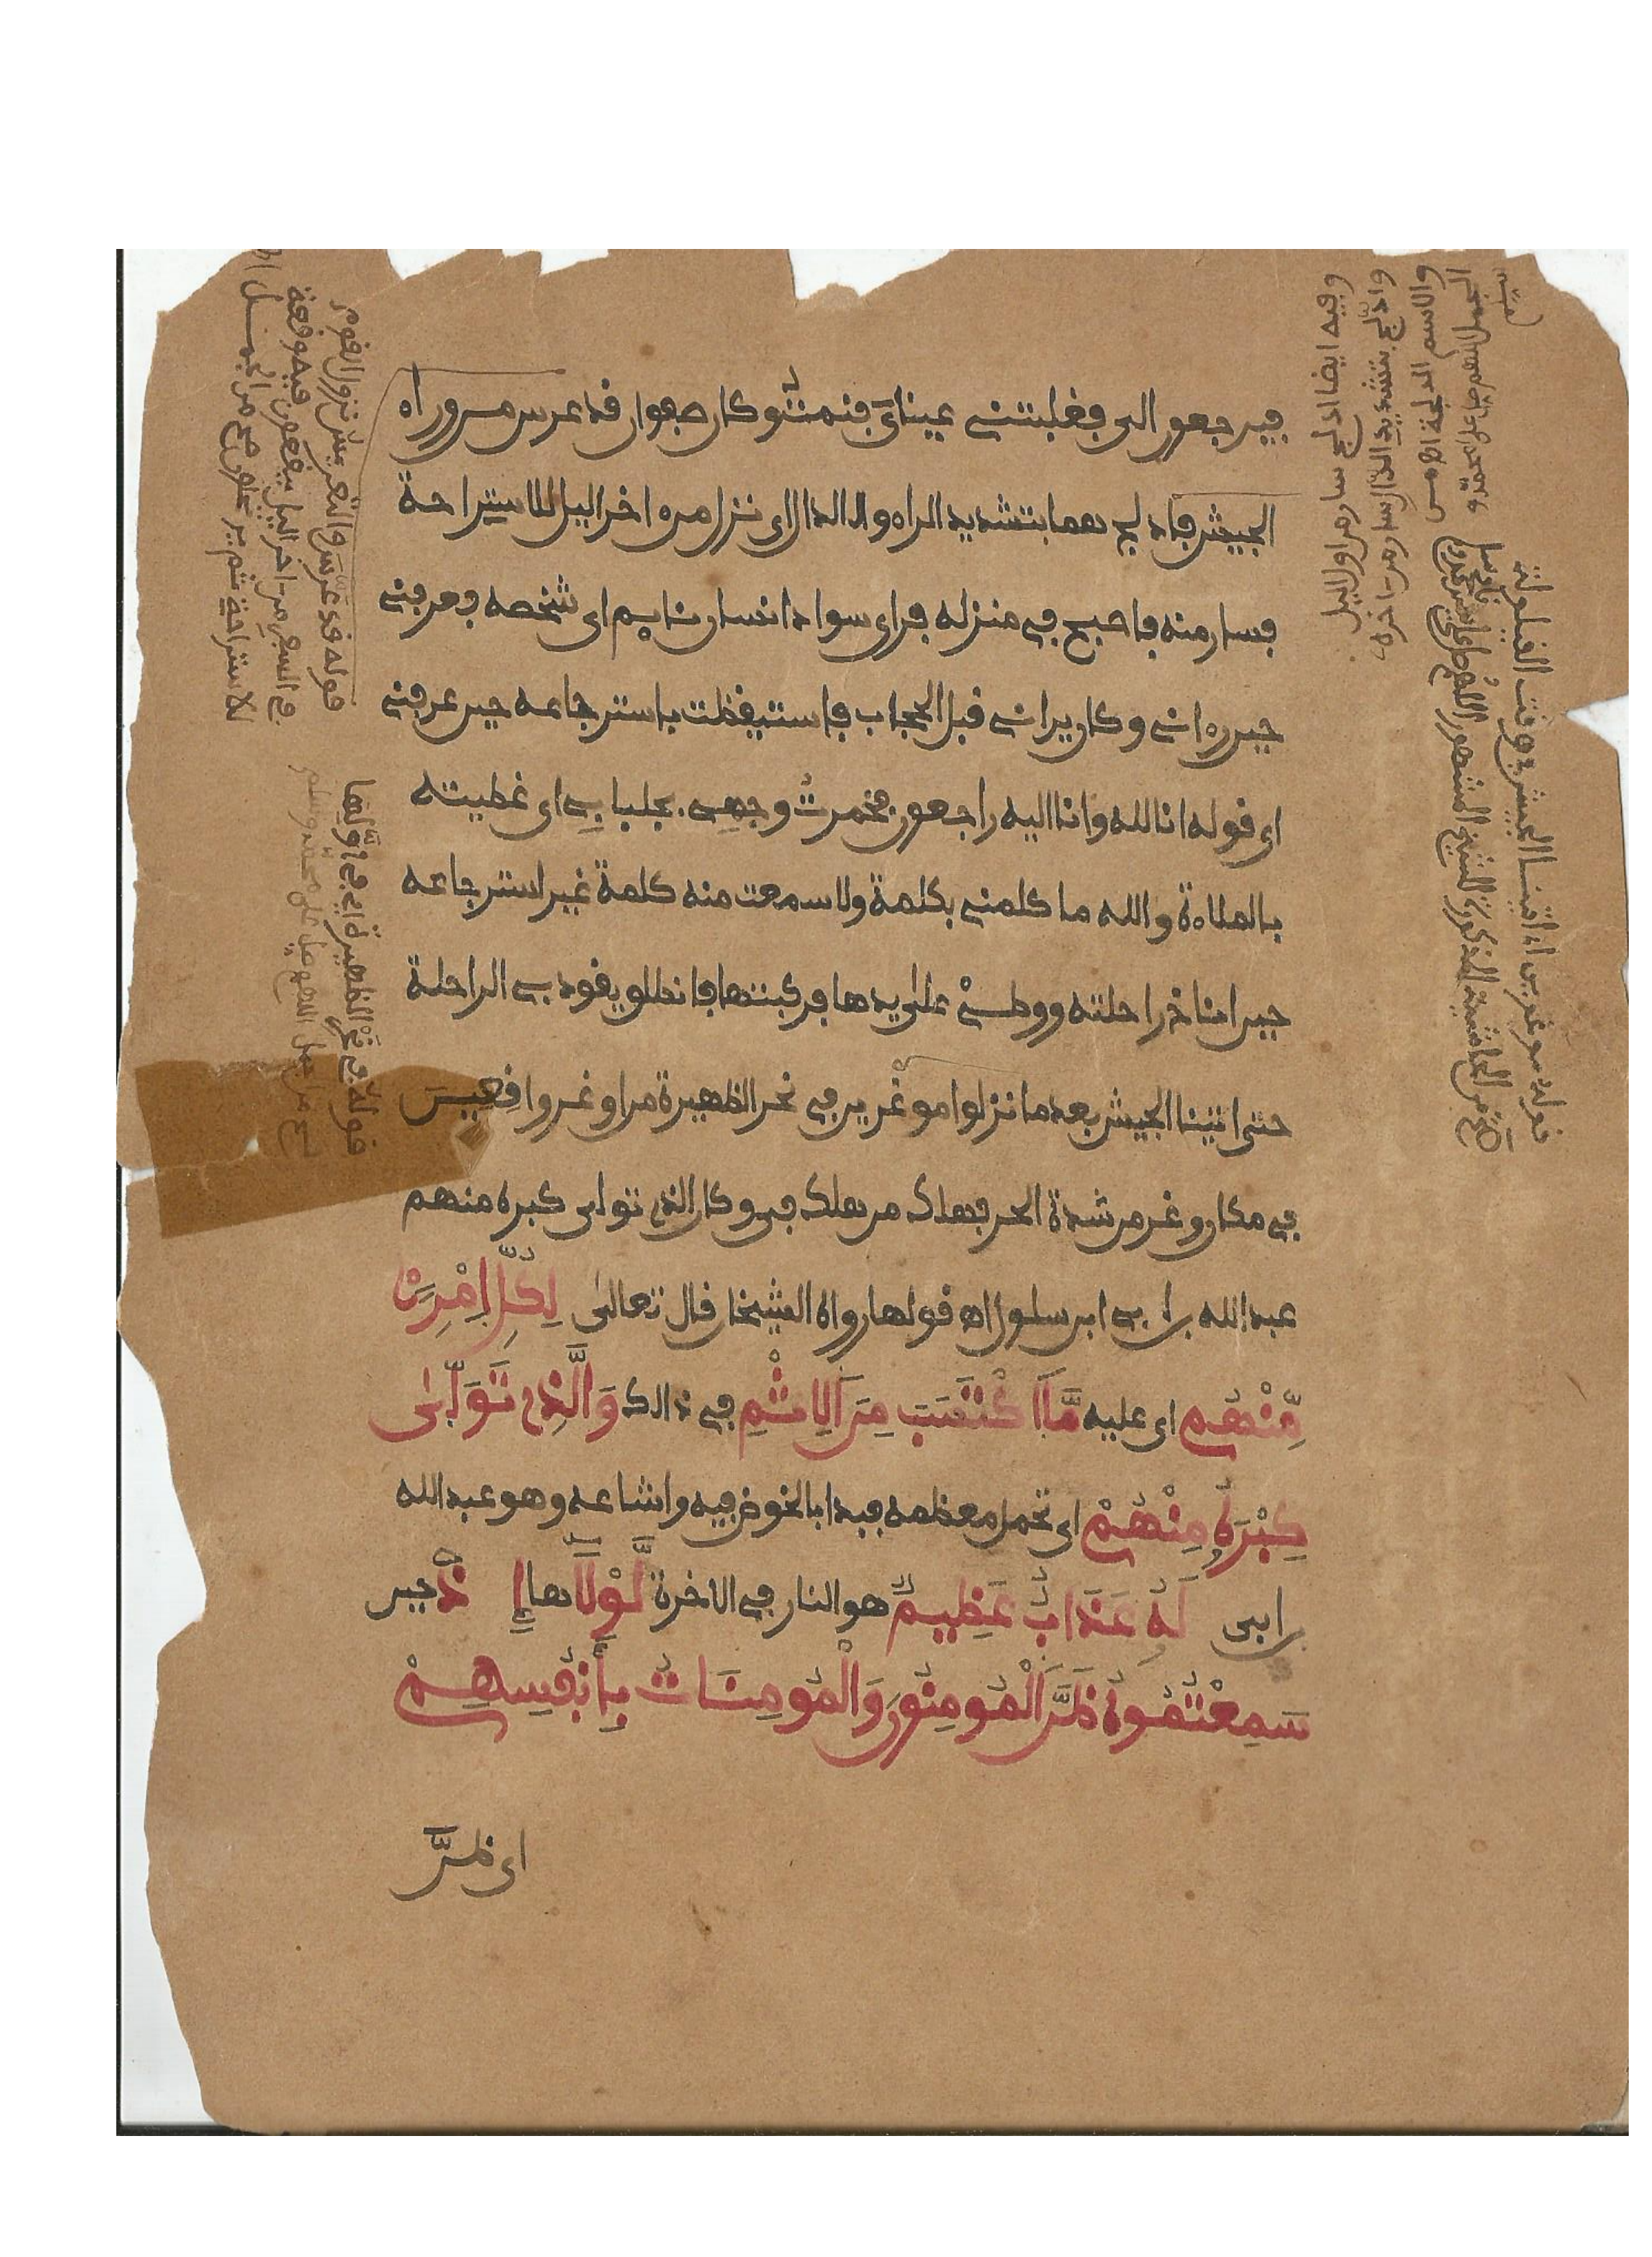 فيرجعون الي فغلبتني عيناي فنمت وكان صفوان قد عرس من وراء
الجيش فادلج هما بتشديد الراء والدال اي نزل من ءاخر اليل للاستراحة
فسار منه فاصبح في منزله فراي سواد انسان نايم اي شخصه فعرفني
حين رءاني وكان يراني قبل الحجاب فاستيقظت باسترجاعه حين عرفني
اي قوله انا لله وانا اليه راجعون فخمرت وجهي بجلبابي اي غطيته
بالملاءة والله ما كلمني بكلمة ولا سمعت منه كلمة غير استرجاعه
حين اناخ راحلته ووطئ على يدها فركبتها فانطلق يقود بي الراحلة
حتى اتينا الجيش بعد ما نزلوا موغرين في نحر الظهيرة من اوغر واقعين
في مكان وغر من شدة الحر فهلك من هلك في وكان الذي تولى كبره منهم
عبد الله بن ابي ابن سلول اه قولها رواه الشيخان قال تعالى لِكُلِّ اِمْرِئٍ
مِّنْهُم اي عليه مَّا اَكْتَسَبَ مِنَ اَلِاثْمِ في ذالك وَالَّذِي تَوَلَّىٰ
كِبْرَهُ مِنْهُمْ اي تحمل معظمه فبدا بالخوض فيه واشاعه وهو عبد الله
بن ابي لَهُ عَذَابٌ عَظِيمٌ هو النار في الاخرة لَّوْلَا هلا إِذْ حين
سَمِعْتُمُوهُ ظَنَّ اَلْمُومِنُونَ وَالْمُومِنَاتُ بِأَنفُسِهِمْ
اي ظنَّ
وفيه ايضا ادلج سار من اول الليل
وادّلج بتشديد الدال سار من ءاخره
والاسم الدلجة
قوله موغرين اه اتينا الجيش في وقت القيلولة
قوله قد عرّس والتعريس نزول القوم
في السفر من ءاخر اليل يقعون فيه وقعة
للاستراحة ثم يرتحلون
قوله في نحر الظهيرة اي في اوّلها